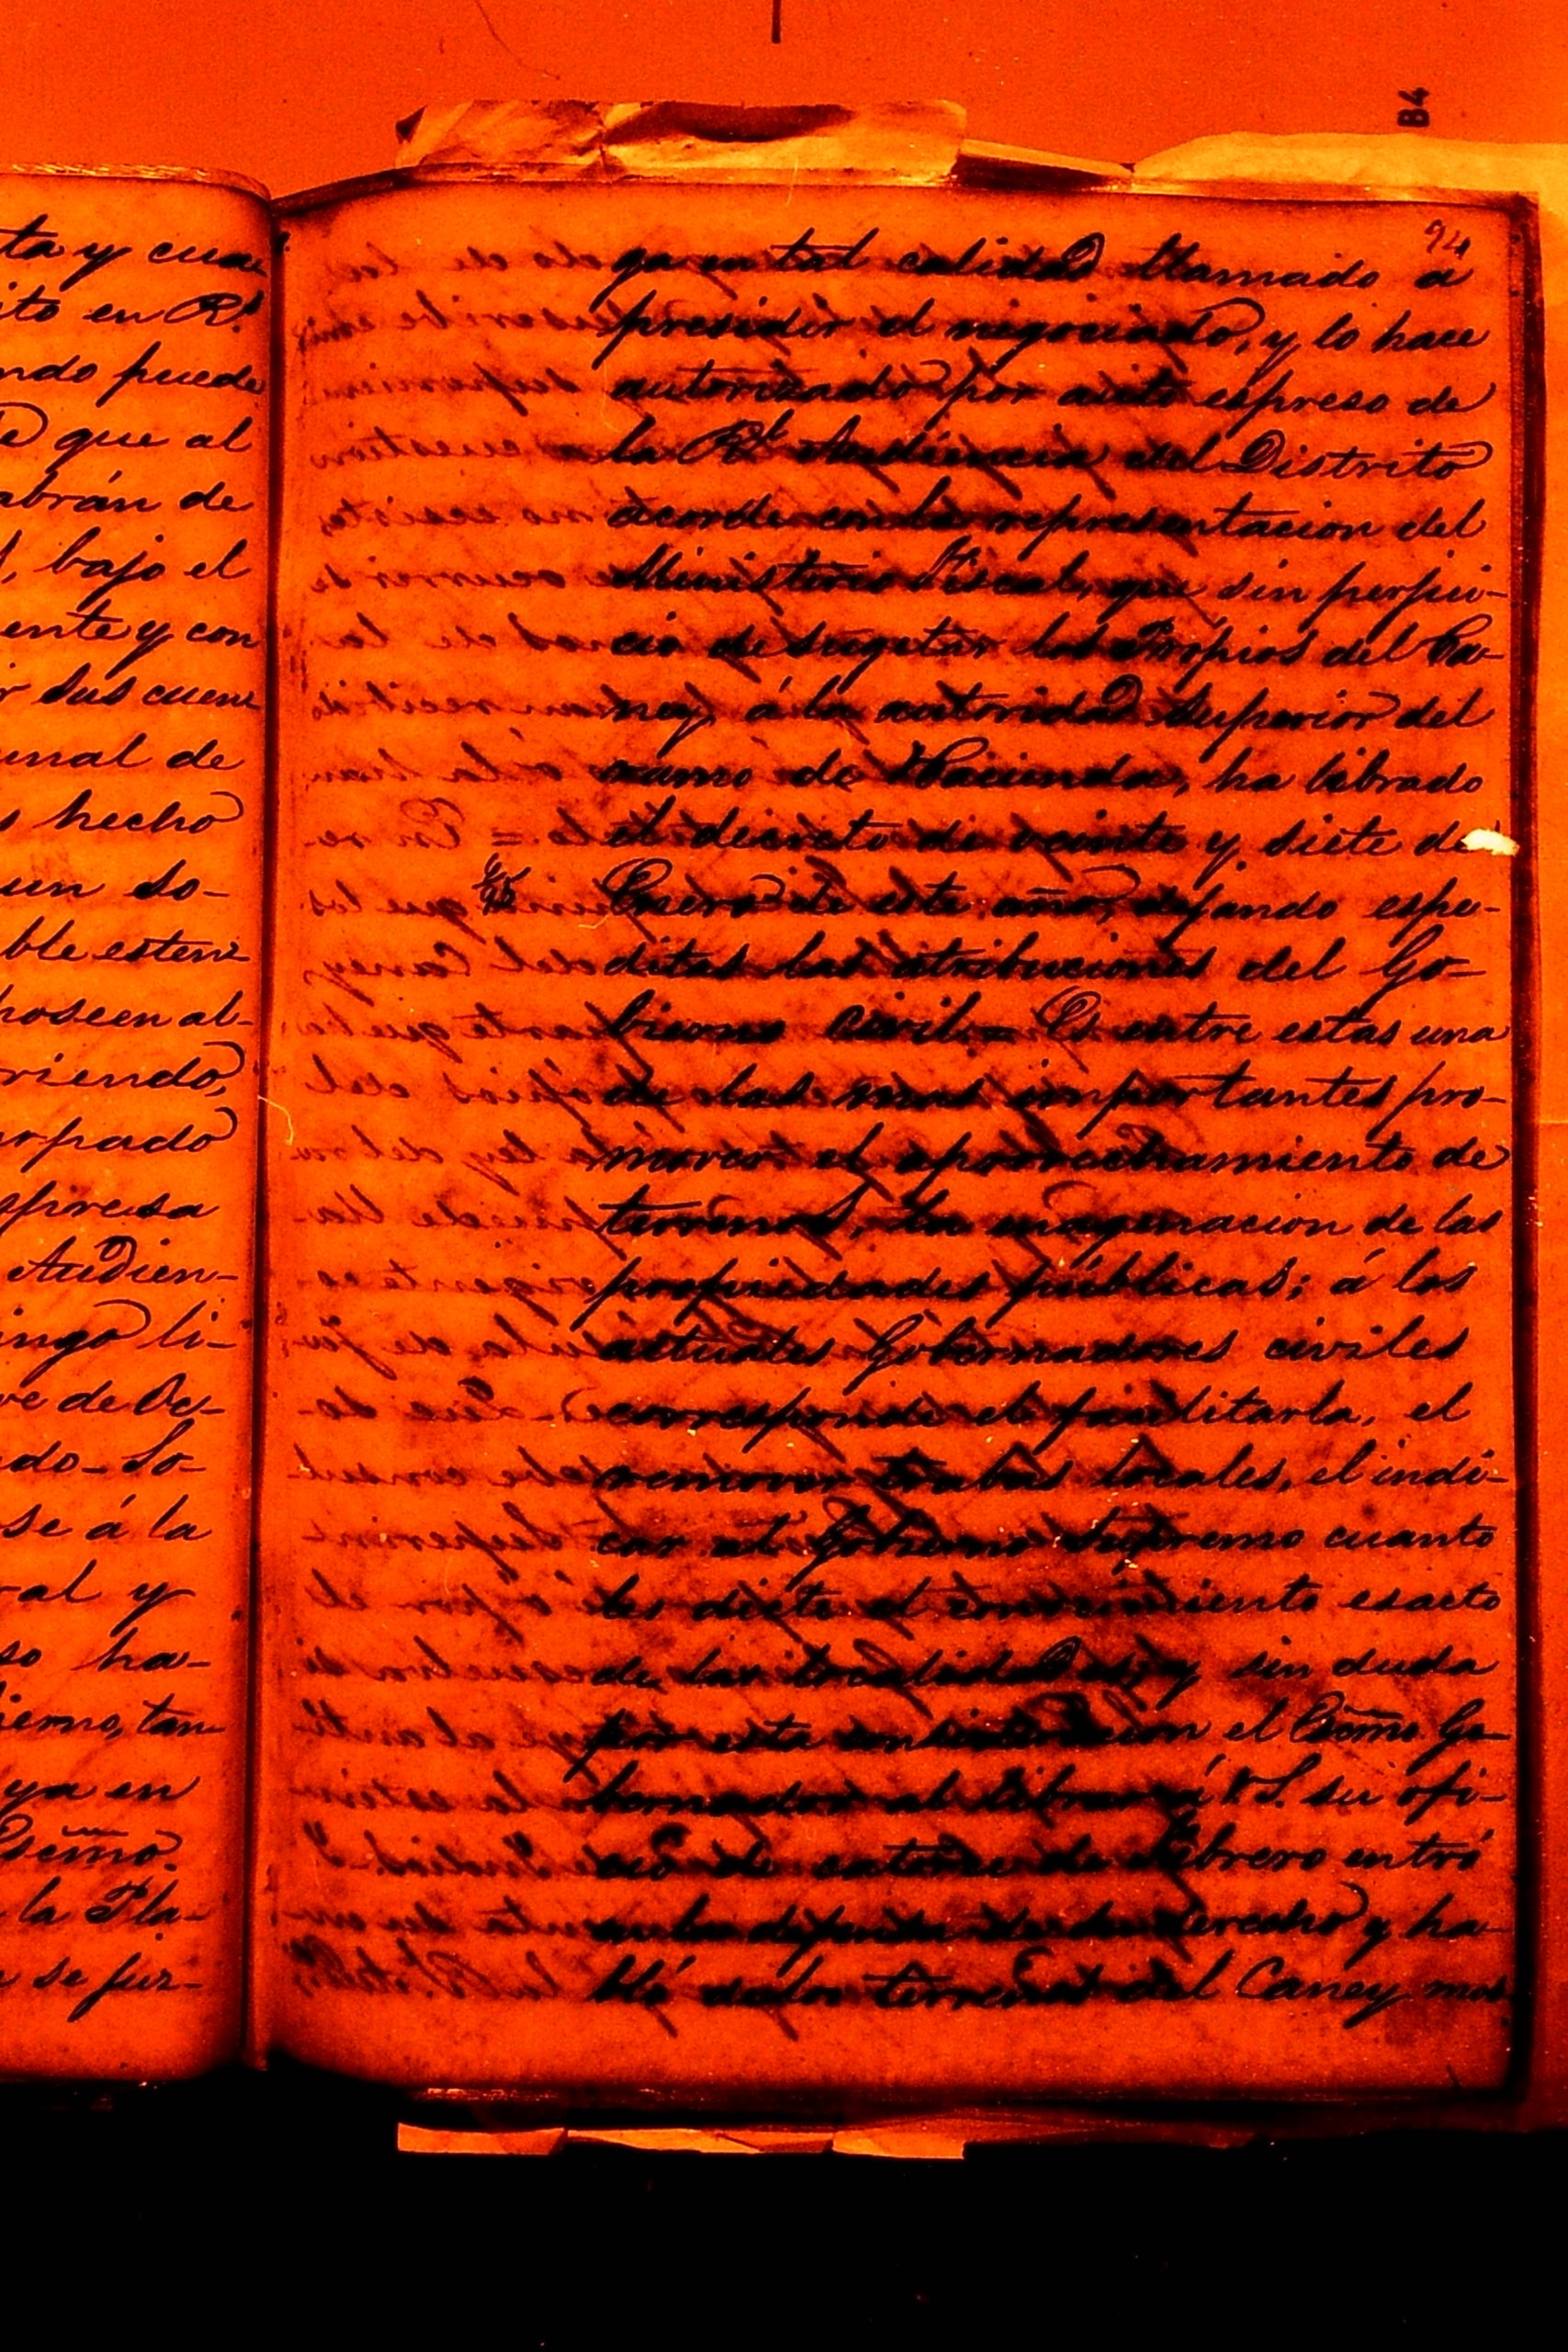 ta y cuen
ito en Rl
ndo puede
e que al
abrán de
l, bajo el
ente y con
r sus cuen
unal de
s hecho
un so-
ble esten-
poseen al-
riendo,
urpado
spresa
Audien-
ingo li-
ve de Oc-
do_So-
se á la
ral y
so ha-
ierno, tan
ya en
Escmo.
la Pla-
se juz-
B4
94
ga en tal calidad llamado a
presidir el negociado, y lo hace
autorizado por auto espreso de
la Rl Audiencia del Distrito
acorde con la representacion del
Ministerio Fiscal, que sin perjui-
cio de sugetar los Própios del Ca-
ney, á la autoridad Superior del
ramo de Hacienda, ha librado
el decreto de veinte y siete de
Enero de este año, dejando espe-
ditas las atribuciones del Go-
bierno Civil = Es entre estas una
de las mas importantes pro-
mover el aprovechamiento de
terrenos, la enagenacion de las
propiedades públicas; á los
actuales Gobernadores civiles
corresponde el facilitarla, el
remover trabas locales, el indi-
car al Gobierno Supremo cuanto
les dicte el conocimiento esacto
de las localidades, y sin duda
por esta consideracion el Escmo. Go-
bernador al librar á V.S. su ofi-
cio de catorce de Febrero entró
en la defensa de su derecho y ha-
bló de los terrenos del Caney mos